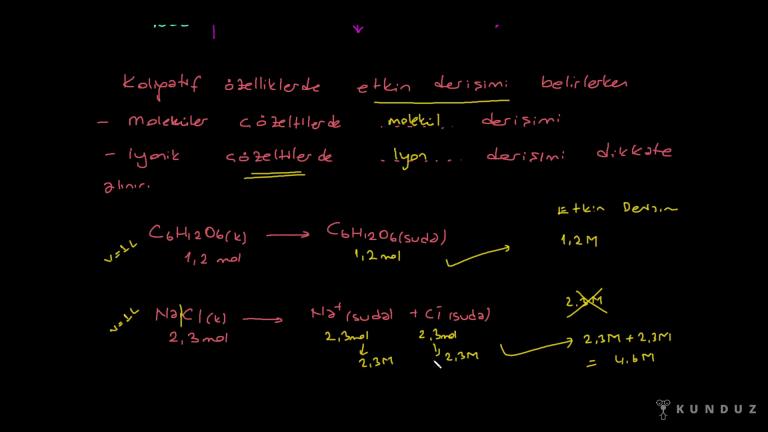 Koligatif özelliklerde etkin derişimi belirlerken
- Moleküler çözeltilerde ..molekül.. derişimi
- İyonik çözeltilerde ..iyon... derişimi dikkate
alınır.
Etkin Derişim
V=1L C6H12O6(k) → C6H12O6(suda) 1,2M
1,2 mol 1,2 mol
2.3M
V=1L NaCl(k) → Na+(suda) + Cl-(suda)
2,3mol 2,3mol 2,3mol 2,3M + 2,3M
2,3M 2,3M = 4,6M
KUNDUZ